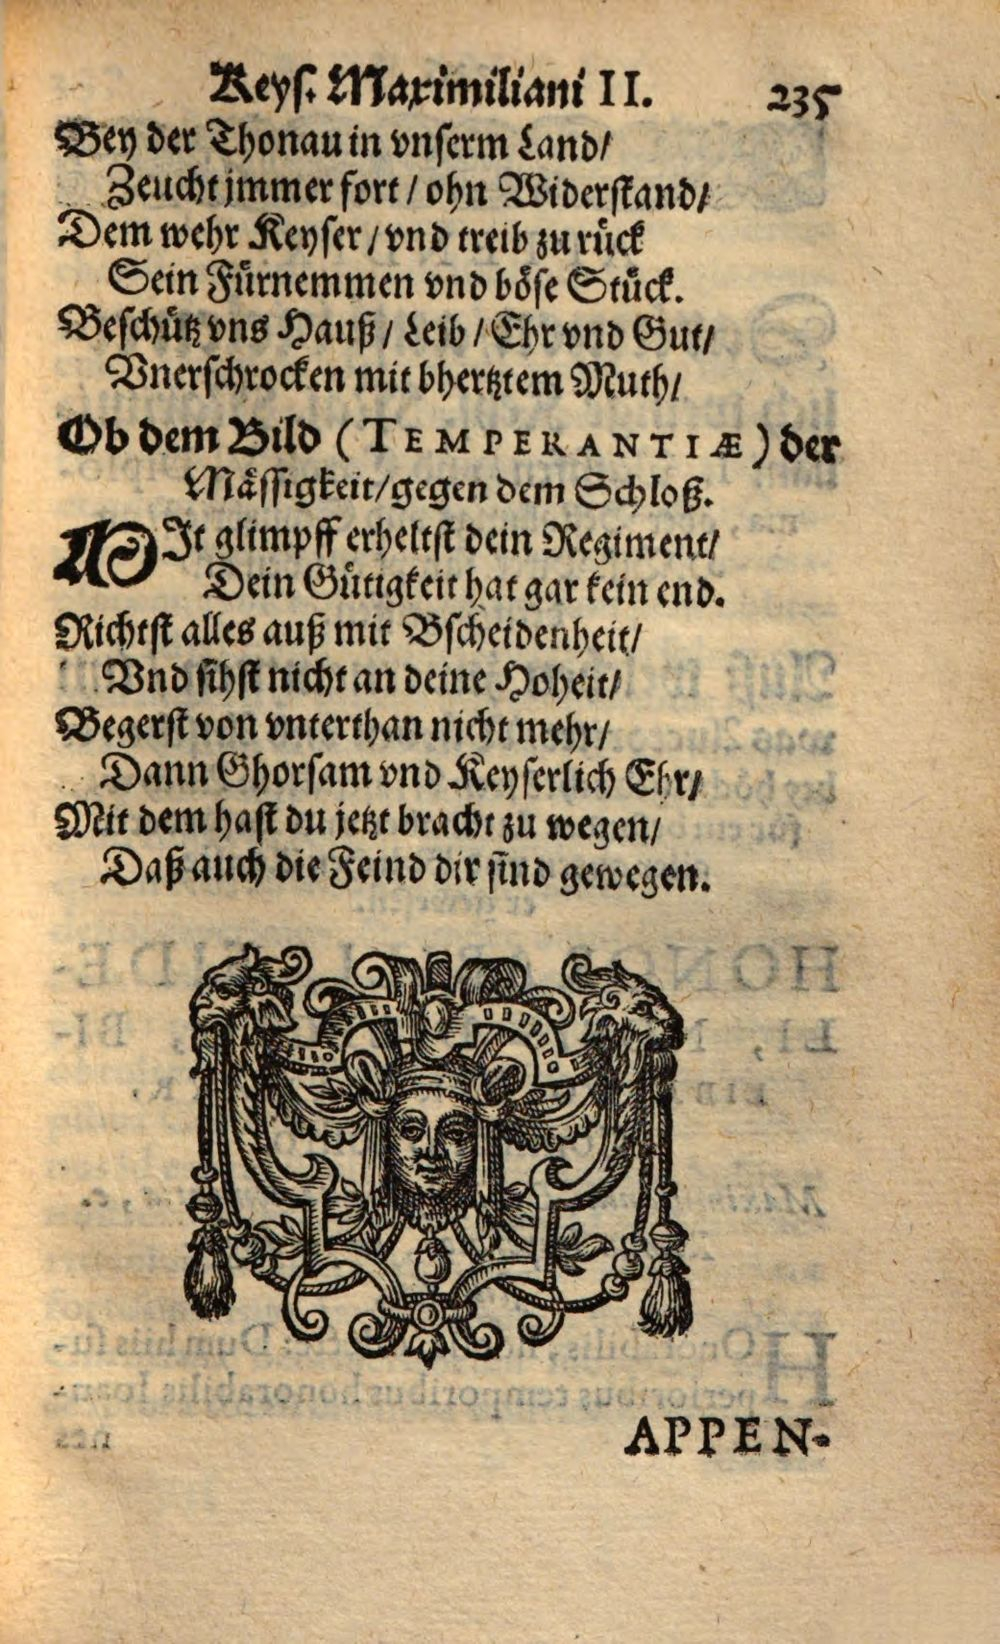 Keys. Maximiliani II. 235
Bey der Thonau in vnserm Land/
Zeucht jmmer fort / ohn Widerstand/
Dem wehr Keyser / vnd treib zu rück
Sein Fürnemmen vnd böse Stück.
Beschütz vns Hauß / Leib / Ehr vnd Gut/
Vnerschrocken mit bhertztem Muth/
Ob dem Bild (TEMPERANTIÆ) der
Mässigkeit/gegen dem Schloß.
MIt glimpff erheltst dein Regiment/
Dein Gütigkeit hat gar kein end.
Richtst alles auß mit Bscheidenheit/
Vnd sihst nicht an deine Hoheit/
Begerst von vnterthan nicht mehr/
Dann Ghorsam vnd Keyserlich Ehr/
Mit dem hast du jetzt bracht zu wegen/
Daß auch die Feind dir sind gewegen.
APPEN-